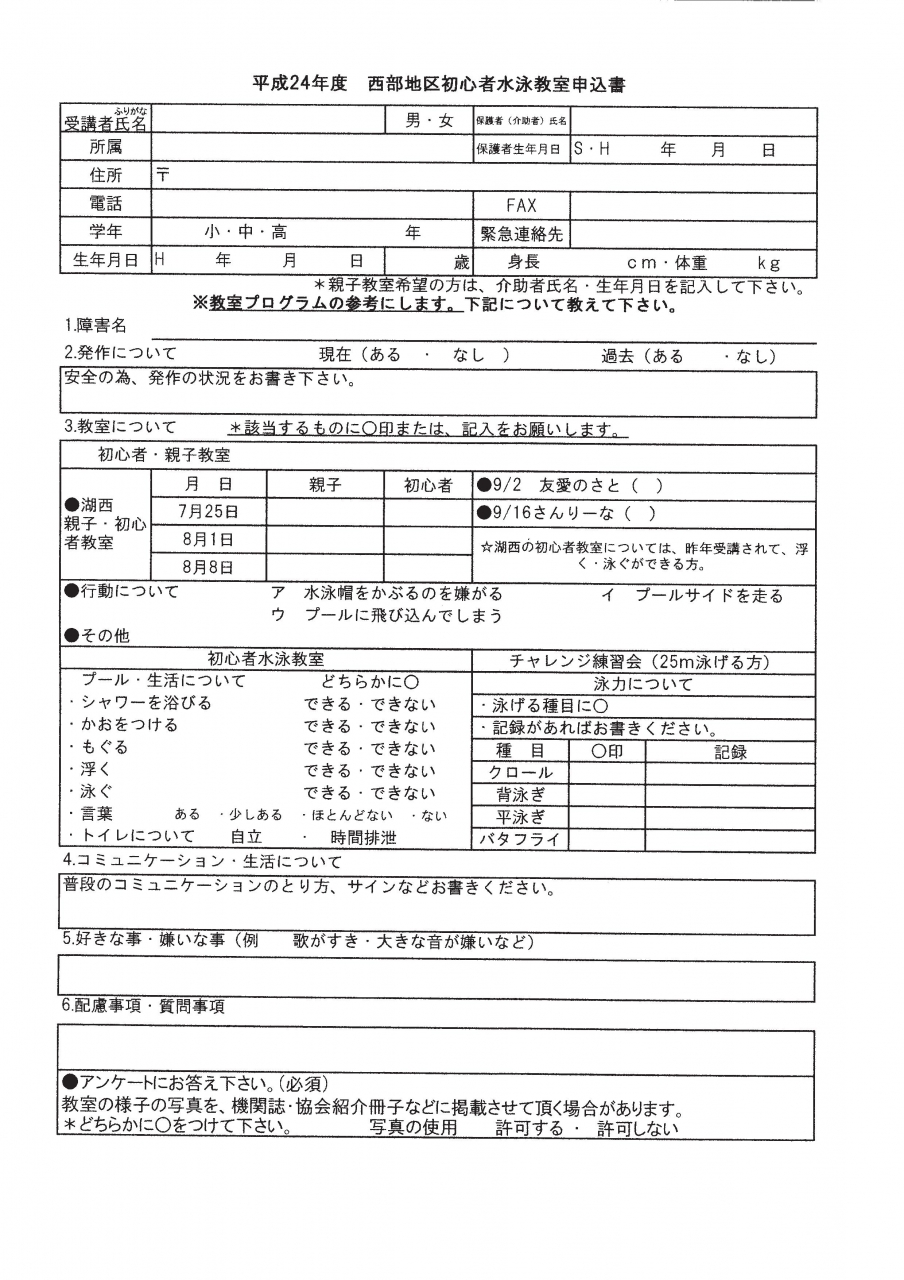 平成24年度　西部地区初心者水泳教室申込書
ふりがな
受講者氏名　男・女　保護者（介助者）氏名
所属　保護者生年月日　S・H　年　月　日
住所　〒
電話　FAX
学年　小・中・高　年　緊急連絡先
生年月日　H　年　月　日　歳　身長　cm・体重　kg
＊親子教室希望の方は、介助者氏名・生年月日を記入して下さい。
※教室プログラムの参考にします。下記について教えて下さい。
1.障害名
2.発作について　現在（ある　・　なし　）　過去（ある　・なし）
安全の為、発作の状況をお書き下さい。
3.教室について　＊該当するものに〇印または、記入をお願いします。
初心者・親子教室
月　日　親子　初心者　●9/2　友愛のさと（　）
●湖西
親子・初心
者教室
7月25日　●9/16さんりーな（　）
8月1日
8月8日
☆湖西の初心者教室については、昨年受講されて、浮
く・泳ぐができる方。
●行動について　ア　水泳帽をかぶるのを嫌がる　イ　プールサイドを走る
ウ　プールに飛び込んでしまう
●その他
初心者水泳教室
プール・生活について　どちらかに〇
・シャワーを浴びる　できる・できない
・かおをつける　できる・できない
・もぐる　できる・できない
・浮く　できる・できない
・泳ぐ　できる・できない
・言葉　ある　・少しある　・ほとんどない　・ない
・トイレについて　自立　・　時間排泄
チャレンジ練習会（25m泳げる方）
泳力について
・泳げる種目に〇
・記録があればお書きください。
種　目　〇印　記録
クロール
背泳ぎ
平泳ぎ
バタフライ
4.コミュニケーション・生活について
普段のコミュニケーションのとり方、サインなどお書きください。
5.好きな事・嫌いな事（例　歌がすき・大きな音が嫌いなど）
6.配慮事項・質問事項
●アンケートにお答え下さい。（必須）
教室の様子の写真を、機関誌・協会紹介冊子などに掲載させて頂く場合があります。
＊どちらかに〇をつけて下さい。　写真の使用　許可する・　許可しない